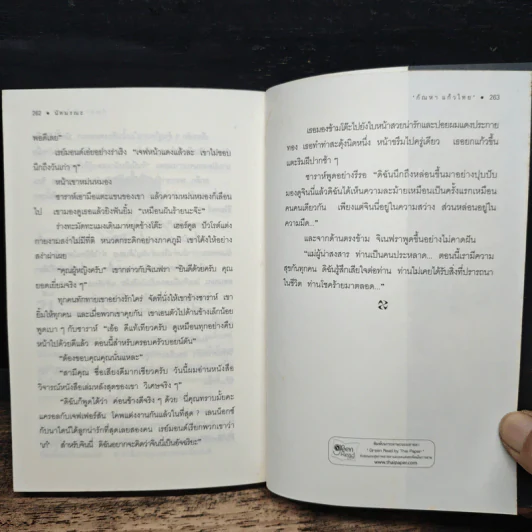 262 • มัทนาวดง
พอดีเลย"
เรย์มอนด์เอ่ยอย่างร่าเริง "เจฟหน้าแดงแล้วละ เขาไม่ชอบ
นึกถึงวันเก่า ๆ"
หน้าเขาแม่นหมอง
ซาราห์เอามือแตะแขนของเขา แล้วความหม่นหมองก็เลือน
ไป เขามองดูเธอแล้วยิงฟันยิ้ม "เหมือนฝันร้ายนะจ๊ะ"
ร่างทะมัดทะแมงเดินมาหยุดข้างโต๊ะ เฮอร์คูล ปัวโรต์แต่ง
กายงามสง่าไม่มีที่ติ หนวดกระดิกอย่างภาคภูมิ เขาโค้งให้อย่าง
สง่าผ่าเผย
"คุณผู้หญิงครับ" เขากล่าวกับจิเนฟรา "ยินดีด้วยครับ คุณ
ยอดเยี่ยมจริง ๆ"
ทุกคนทักทายเขาอย่างรักใคร่ จัดที่นั่งให้เขาข้างซาราห์ เขา
ยิ้มให้ทุกคน และเมื่อพวกเขาคุยกัน เขาเอนตัวไปด้านข้างเล็กน้อย
พูดเบา ๆ กับซาราห์ "เอ้อ ดีแท้เทียวครับ ดูเหมือนทุกอย่างคืบ
หน้าไปด้วยดีแล้ว ตอนนี้สำหรับครอบครัวบอยน์ตัน"
"ต้องขอบคุณคุณนั่นแหละ"
"สามีคุณ ชื่อเสียงดีมากเชียวครับ วันนี้ผมอ่านหนังสือ
วิจารณ์หนังสือเล่มหลังสุดของเขา วิเศษจริง ๆ"
"ดิฉันก็พูดได้ว่า ค่อนข้างดีจริง ๆ ด้วย นี่คุณทราบมั้ยคะ
แครอลกับเจฟเฟอร์สัน โคพแต่งงานกันแล้วในที่สุด ? เลนน็อกซ์
กับนาไดน์ได้ลูกน่ารักที่สุดเลยสองคน เรย์มอนด์เรียกพวกเขาว่า
'เก๋' สำหรับจินนี่ ดิฉันอยากจะคิดว่าจินนี่เป็นอัจฉริยะ"
"กัณหา แก้วไทย" • 263
เธอมองข้ามโต๊ะไปยังใบหน้าสวยน่ารักและปอยผมแดงประกาย
ทอง เธอทำท่าสะดุ้งนิดหนึ่ง หน้าขรึมไปครู่เดียว เธอยกแก้วขึ้น
แตะริมฝีปากช้า ๆ
ซาราห์พูดอย่างรีรอ "ดิฉันนึกถึงหล่อนขึ้นมาอย่างปุบปับ
มองดูจินนี่แล้วดิฉันได้เห็นความละม้ายเหมือนเป็นครั้งแรกเหมือน
คนคนเดียวกัน เพียงแต่จินนี่อยู่ในความสว่าง ส่วนหล่อนอยู่ใน
ความมืด..."
และจากด้านตรงข้าม จิเนฟราพูดขึ้นอย่างไม่คาดฝัน
"แม่ผู้น่าสงสาร ท่านเป็นคนประหลาด... ตอนนี้เรามีความ
สุขกันทุกคน ดิฉันรู้สึกเสียใจต่อท่าน ท่านไม่เคยได้รับสิ่งที่ปรารถนา
ในชีวิต ท่านโชคร้ายมาตลอด..."
Green
Read
" Green Read by Thai Paper "
www.thaipaper.com